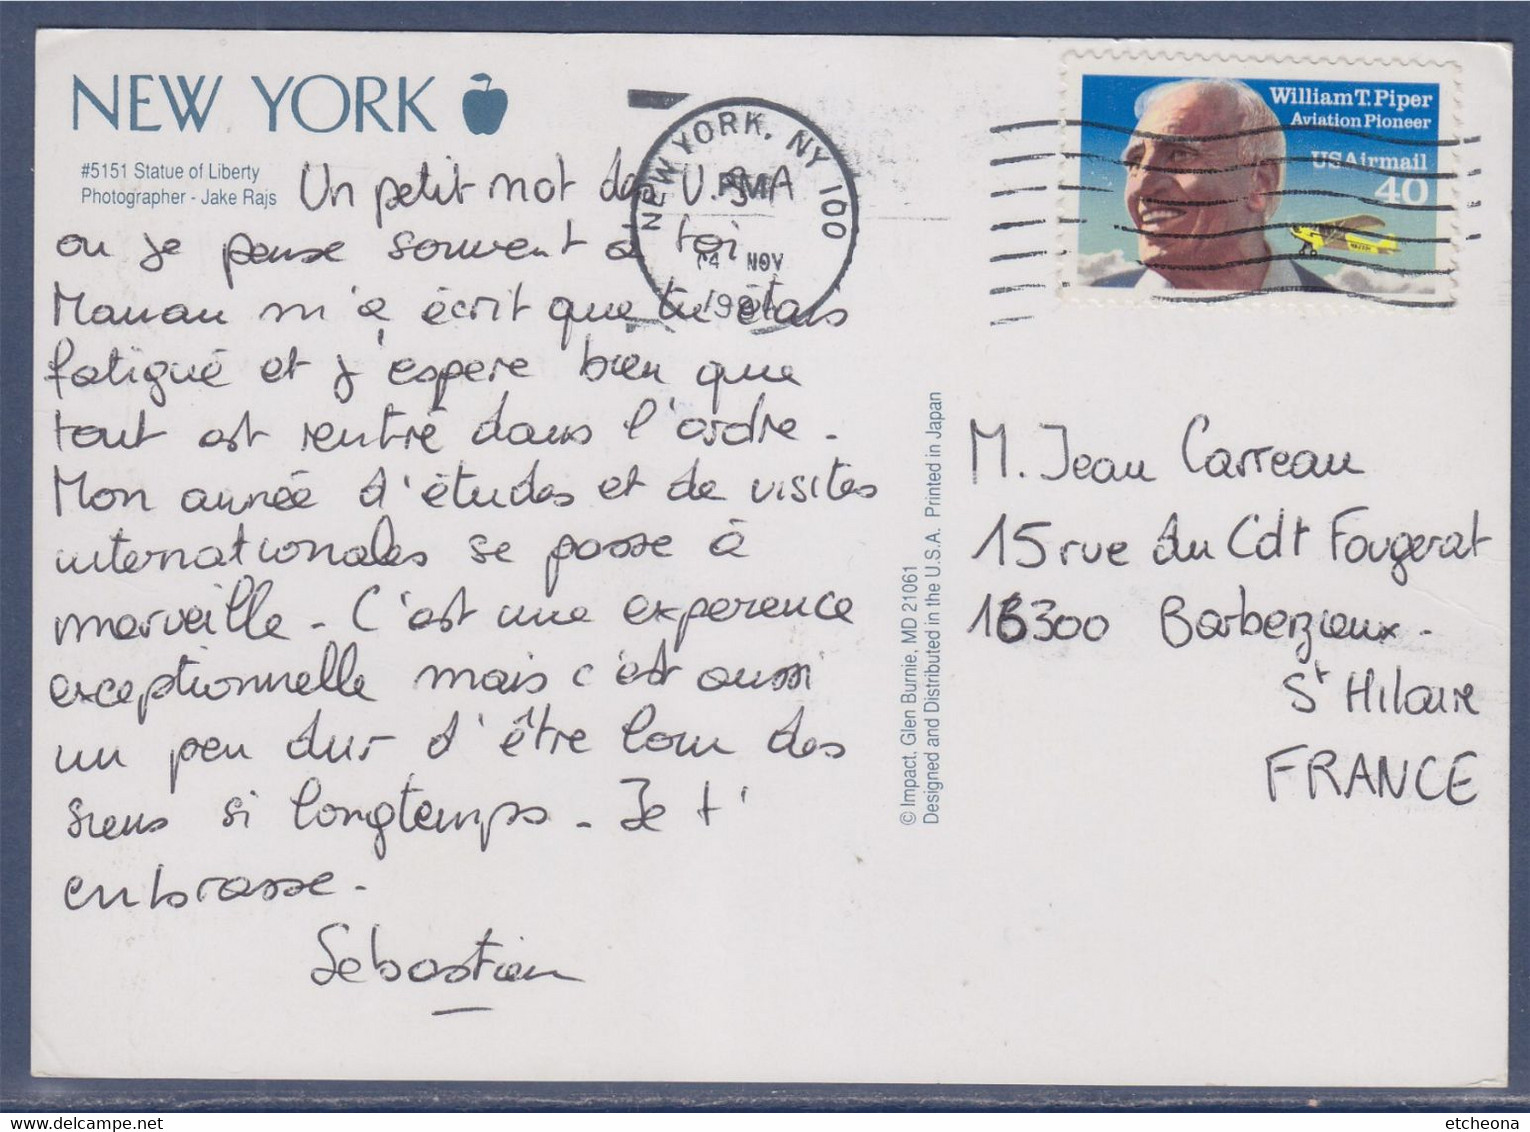 NEW YORK
#5151 Statue of Liberty
Photographer - Jake Rajs
NEW YORK, NY 100
PM
04 NOV
William T. Piper
Aviation Pioneer
USAirmail
40
Un petit mot de U.S.A
ou je pense souvent à toi
Maman m'a écrit que tu étais
fatigué et j'espère bien que
tout est rentré dans l'ordre.
Mon année d'études et de visites
internationales se passe à
merveille. C'est une experence
exceptionnelle mais c'est aussi
un peu dur d'être loin des
siens si longtemps. Je t'
embrasse.
Sebastien
© Impact, Glen Burnie, MD 21061
Designed and Distributed in the U.S.A. Printed in Japan
M. Jean Carreau
15 rue du Cdt Fougerat
16300 Barbezieux.
St Hilaire
FRANCE
etcheona